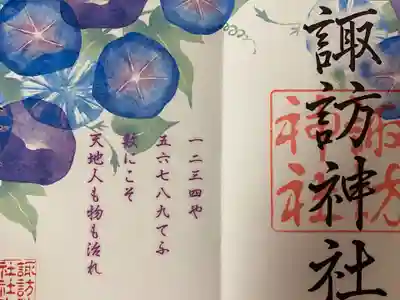 諏訪神社
諏訪
神社
一二三四や
五六七八九てふ
数にこそ
天地人も物も治れ